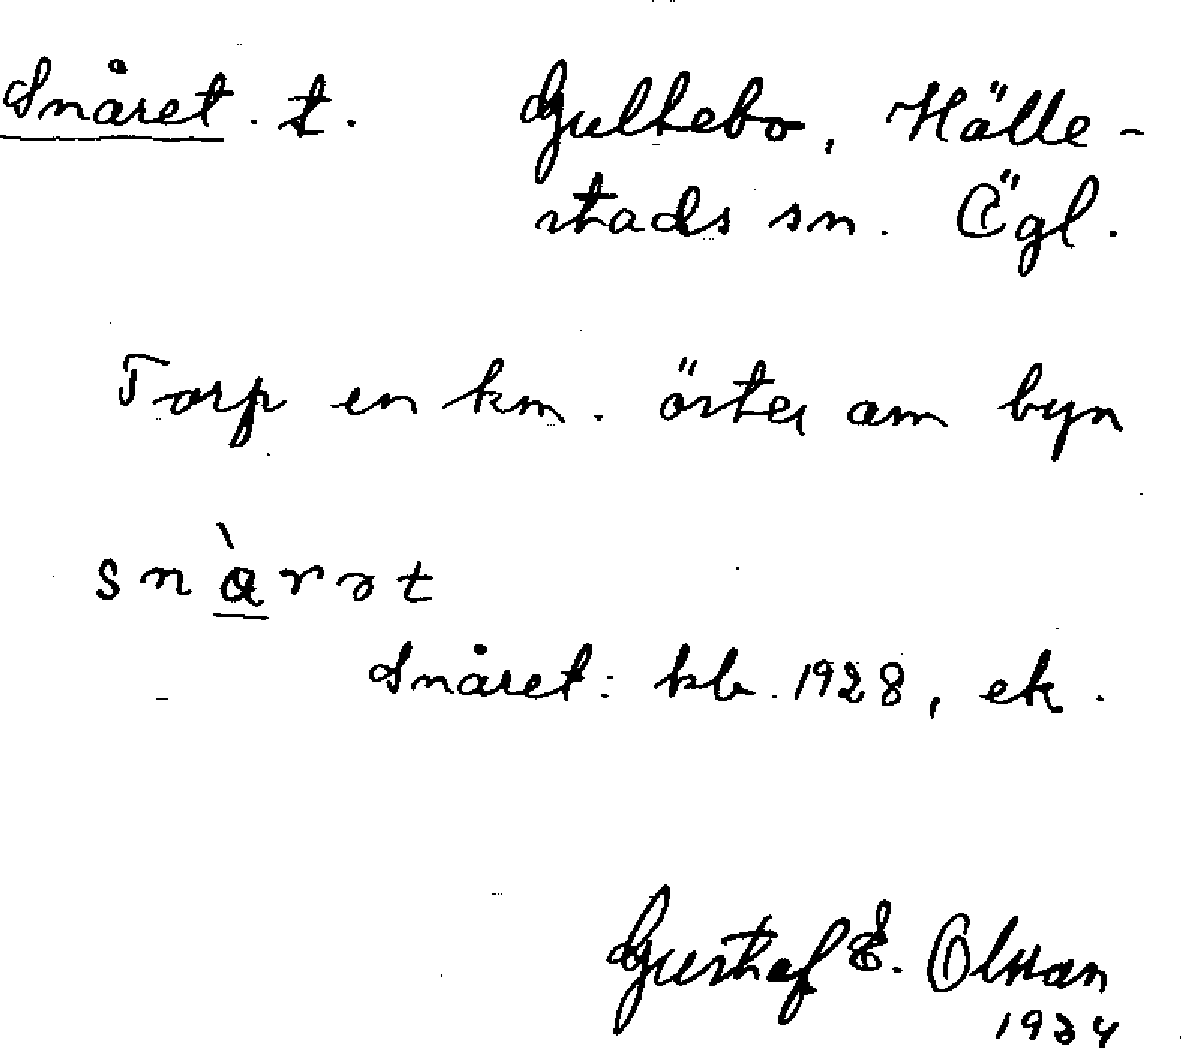 Snåret. t. Gultebo, Hälle-
stads sn. Ögl.
Torp en km. öster om byn
snàrət
Snåret: kb. 1928, ek.
Gustaf E. Olsson
1934